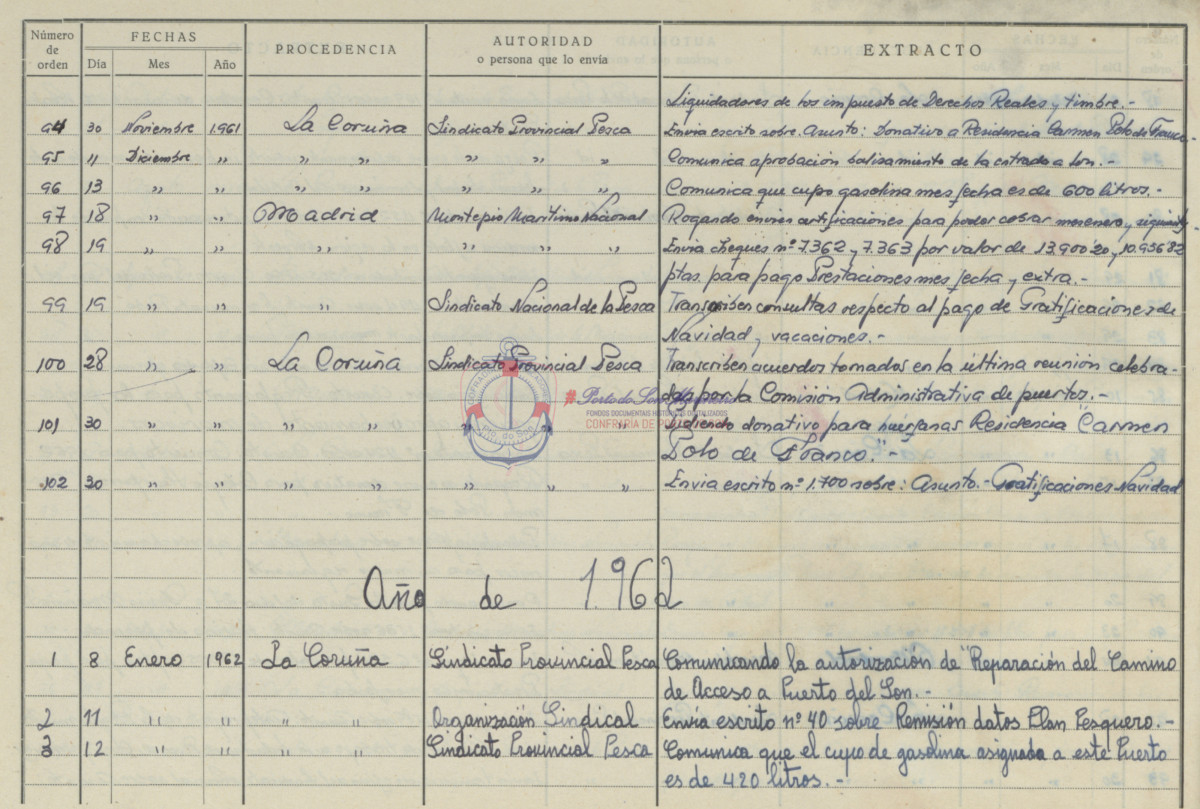 Número de orden FECHAS Día Mes Año PROCEDENCIA AUTORIDAD o persona que lo envía EXTRACTO
Liquidadores de los impuesto de Derechos Reales y timbre.-
94 30 Noviembre 1961 La Coruña Sindicato Provincial Pesca Envia escrito sobre. Asunto: Donativo a Residencia Carmen Polo de Franco.-
95 11 Diciembre ,, ,, ,, ,, ,, ,, Comunica aprobación balisamiento de la entrada a Son.-
96 13 ,, ,, ,, ,, ,, ,, ,, Comunica que cupo gasolina mes fecha es de 600 litros.-
97 18 ,, ,, Madrid Montepio Marítimo Nacional Rogando envien certificaciones para poder cobrar mes enero y
98 19 ,, ,, ,, ,, ,, ,, Envia cheques nº 7.362 y 7.363 por valor de 13.900 20 y 10.956 82
ptas. para pago Prestaciones mes fecha y extra.-
99 19 ,, ,, ,, Sindicato Nacional de la Pesca Transcriben consultas respecto al pago de Gratificaciones de
Navidad y vacaciones.-
100 28 ,, ,, La Coruña Sindicato Provincial Pesca Transcriben acuerdos tomados en la última reunión celebra-
das por la Comisión Administrativa de puertos.-
101 30 ,, ,, ,, ,, ,, ,, ,, Pidiendo donativo para huerfanas Residencia "Carmen
Polo de Franco."-
102 30 ,, ,, ,, ,, ,, ,, ,, Envia escrito nº 1.700 sobre: Asunto.- Gratificaciones Navidad
#Porto do Son
FONDOS DOCUMENTAIS HISTÓRICOS DIXITALIZADOS
CONFRARÍA DE
Pto. do Son
Año de 1.962
1 8 Enero 1962 La Coruña Sindicato Provincial Pesca Comunicando la autorización de "Reparación del Camino
de Acceso a Puerto del Son.-
2 11 ,, ,, ,, ,, Organización Sindical Envía escrito nº 40 sobre Remisión datos Plan Pesquero.-
3 12 ,, ,, ,, ,, Sindicato Provincial Pesca Comunica que el cupo de gasolina asignada a este Puerto
es de 420 litros.-